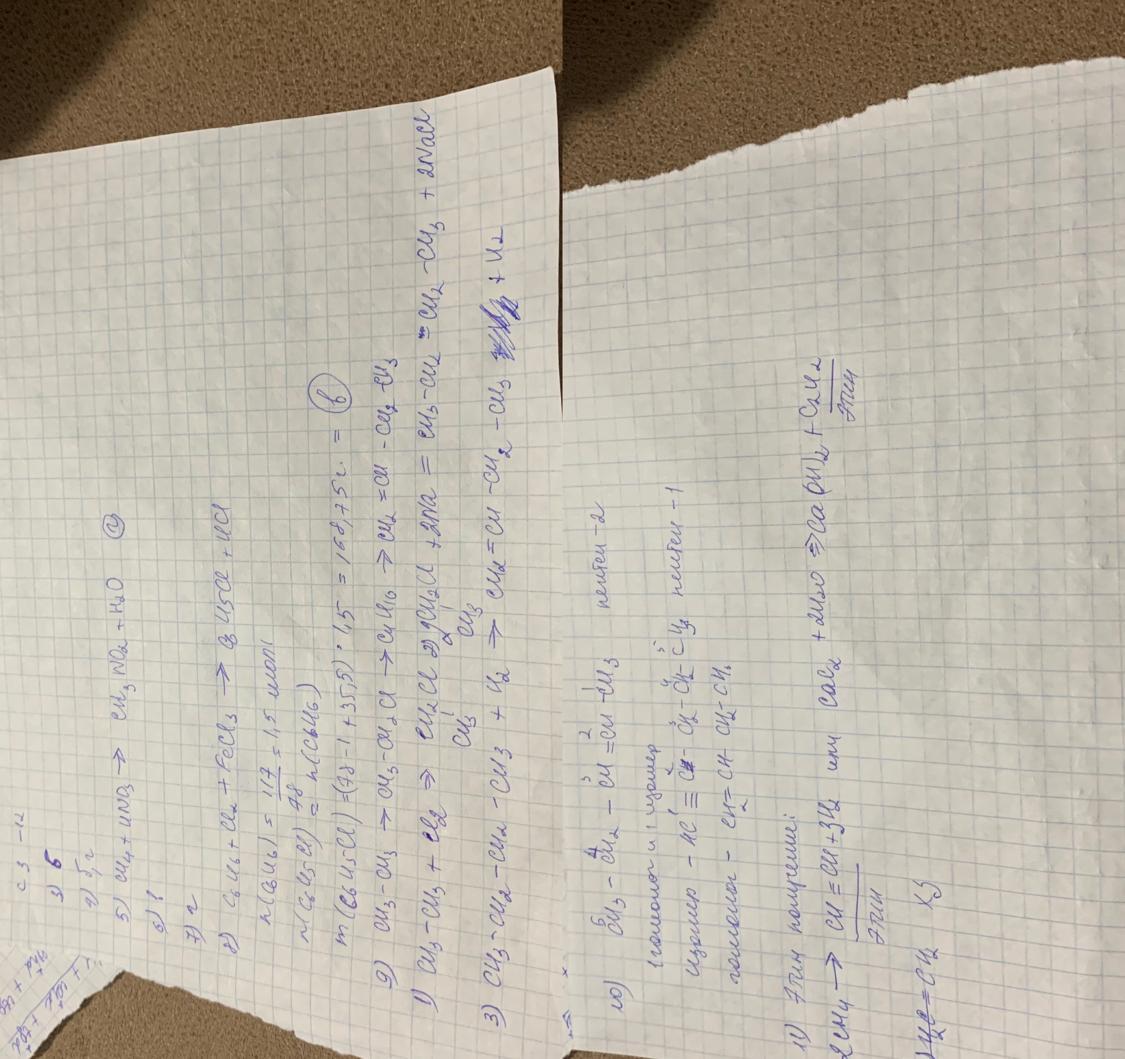 5) CH4 + HNO3 → CH3NO2 + H2O
7) г
8) C6H6 + Cl2 + FeCl3 → C6H5Cl + HCl
n(C6H6) = 117/78 = 1,5 моль
n(C6H5Cl) = n(C6H6)
m(C6H5Cl) = (78-1+35,5) · 1,5 = 168,75 г. = в
9) CH3-CH3 → CH3-CH2Cl → C4H10 → CH2=CH-CH2-CH3
1) CH3-CH3 + Cl2 ⇒ CH2Cl 2) 2CH2Cl + 2Na = CH3-CH2-CH2-CH3 + 2NaCl
CH3 CH3
3) CH3-CH2-CH2-CH3 + H2 ⇒ CH2=CH-CH2-CH3 + H2
10) CH3-CH2-CH=CH-CH3 пентен-2
5 4 3 2 1
1 гомолог и 1 изомер
изомер - HC≡C-CH2-CH2-CH3 пентен-1
гомолог - CH2=CH-CH2-CH3
11) Этин получение:
2CH4 → CH≡CH+3H2 или CaC2 + 2H2O ⇒ Ca(OH)2 + C2H2
Этин Этин